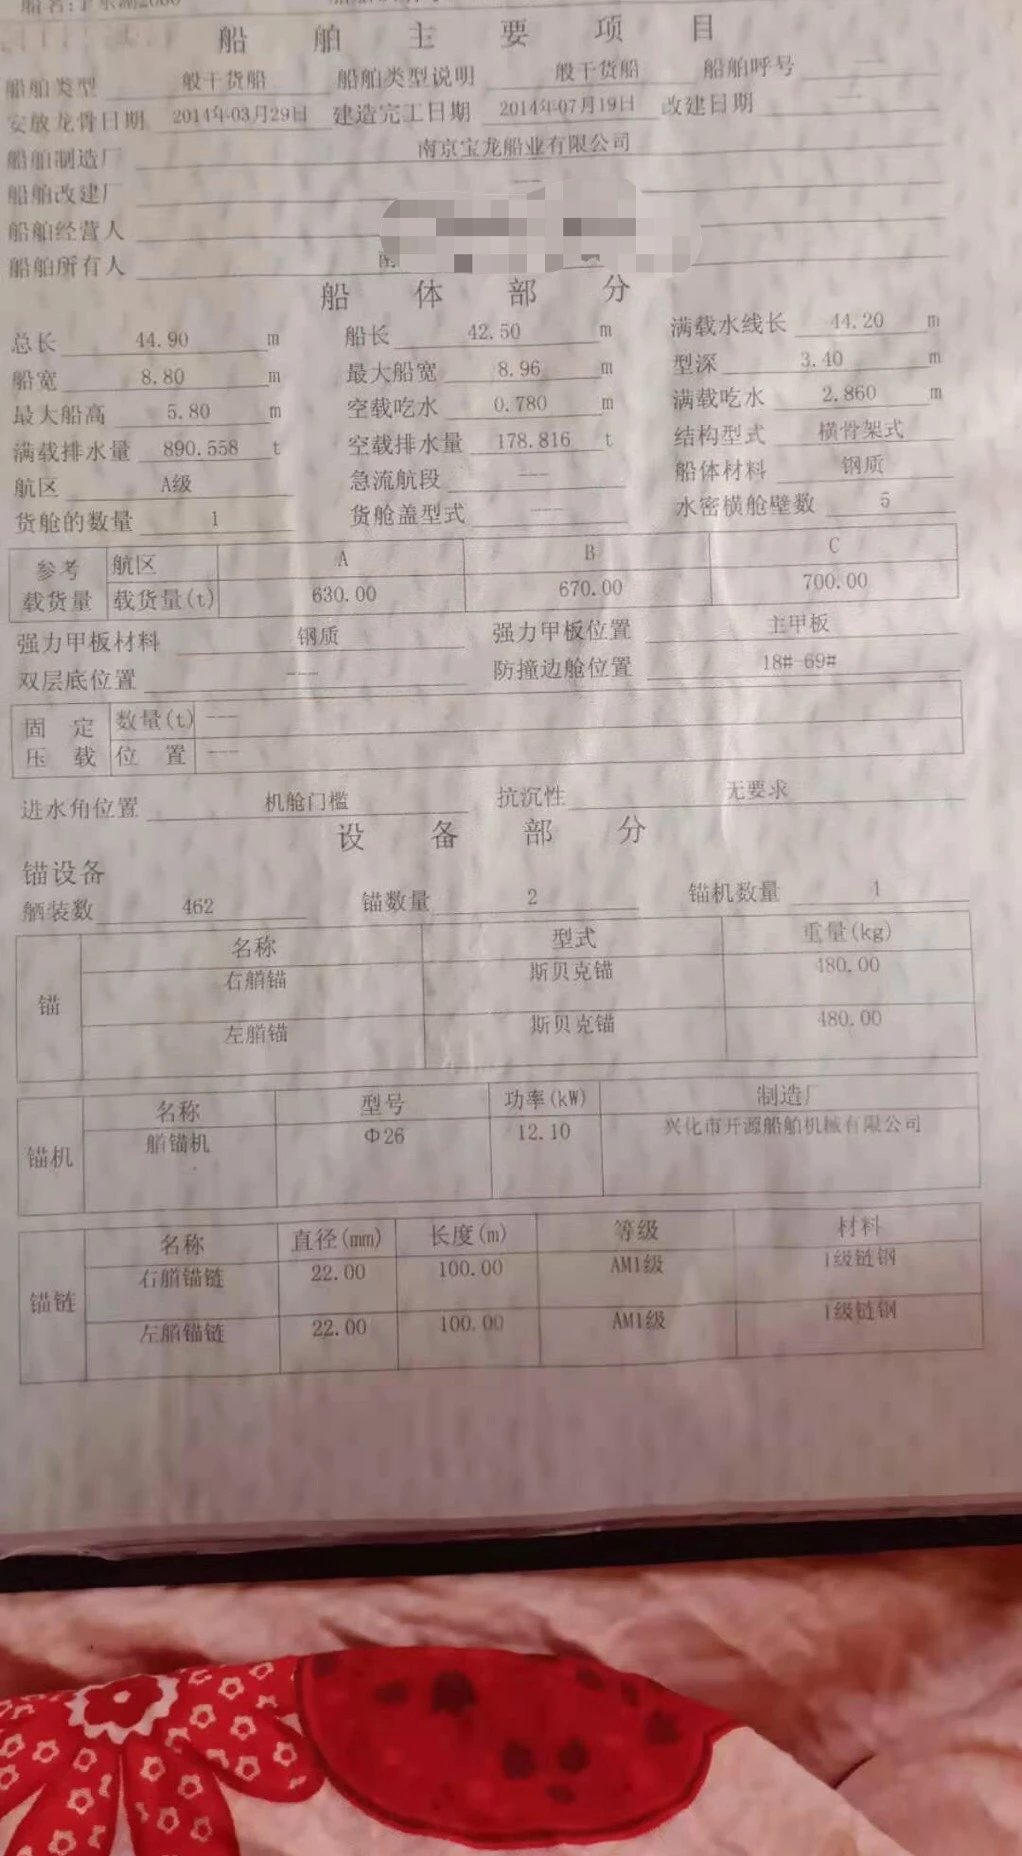 船舶主要项目
船舶类型 一般干货船 船舶类型说明 一般干货船 船舶呼号 ---
安放龙骨日期 2014年03月29日 建造完工日期 2014年07月19日 改建日期 ---
船舶制造厂 南京宝龙船业有限公司
船舶改建厂
船舶经营人
船舶所有人
船体部分
总长 44.90 m 船长 42.50 m 满载水线长 44.20 m
船宽 8.80 m 最大船宽 8.96 m 型深 3.40 m
最大船高 5.80 m 空载吃水 0.780 m 满载吃水 2.860 m
满载排水量 890.558 t 空载排水量 178.816 t 结构型式 横骨架式
航区 A级 急流航段 --- 船体材料 钢质
货舱的数量 1 货舱盖型式 --- 水密横舱壁数 5
参考载货量 航区 A B C
载货量(t) 630.00 670.00 700.00
强力甲板材料 钢质 强力甲板位置 主甲板
双层底位置 --- 防撞边舱位置 18#-69#
固定压载 数量(t) ---
位置 ---
进水角位置 机舱门槛 抗沉性 无要求
设备部分
锚设备
舾装数 462 锚数量 2 锚机数量 1
锚 名称 型式 重量(kg)
右艏锚 斯贝克锚 480.00
左艏锚 斯贝克锚 480.00
锚机 名称 型号 功率(kW) 制造厂
艏锚机 Φ26 12.10 兴化市开源船舶机械有限公司
锚链 名称 直径(mm) 长度(m) 等级 材料
右艏锚链 22.00 100.00 AM1级 1级链钢
左艏锚链 22.00 100.00 AM1级 1级链钢